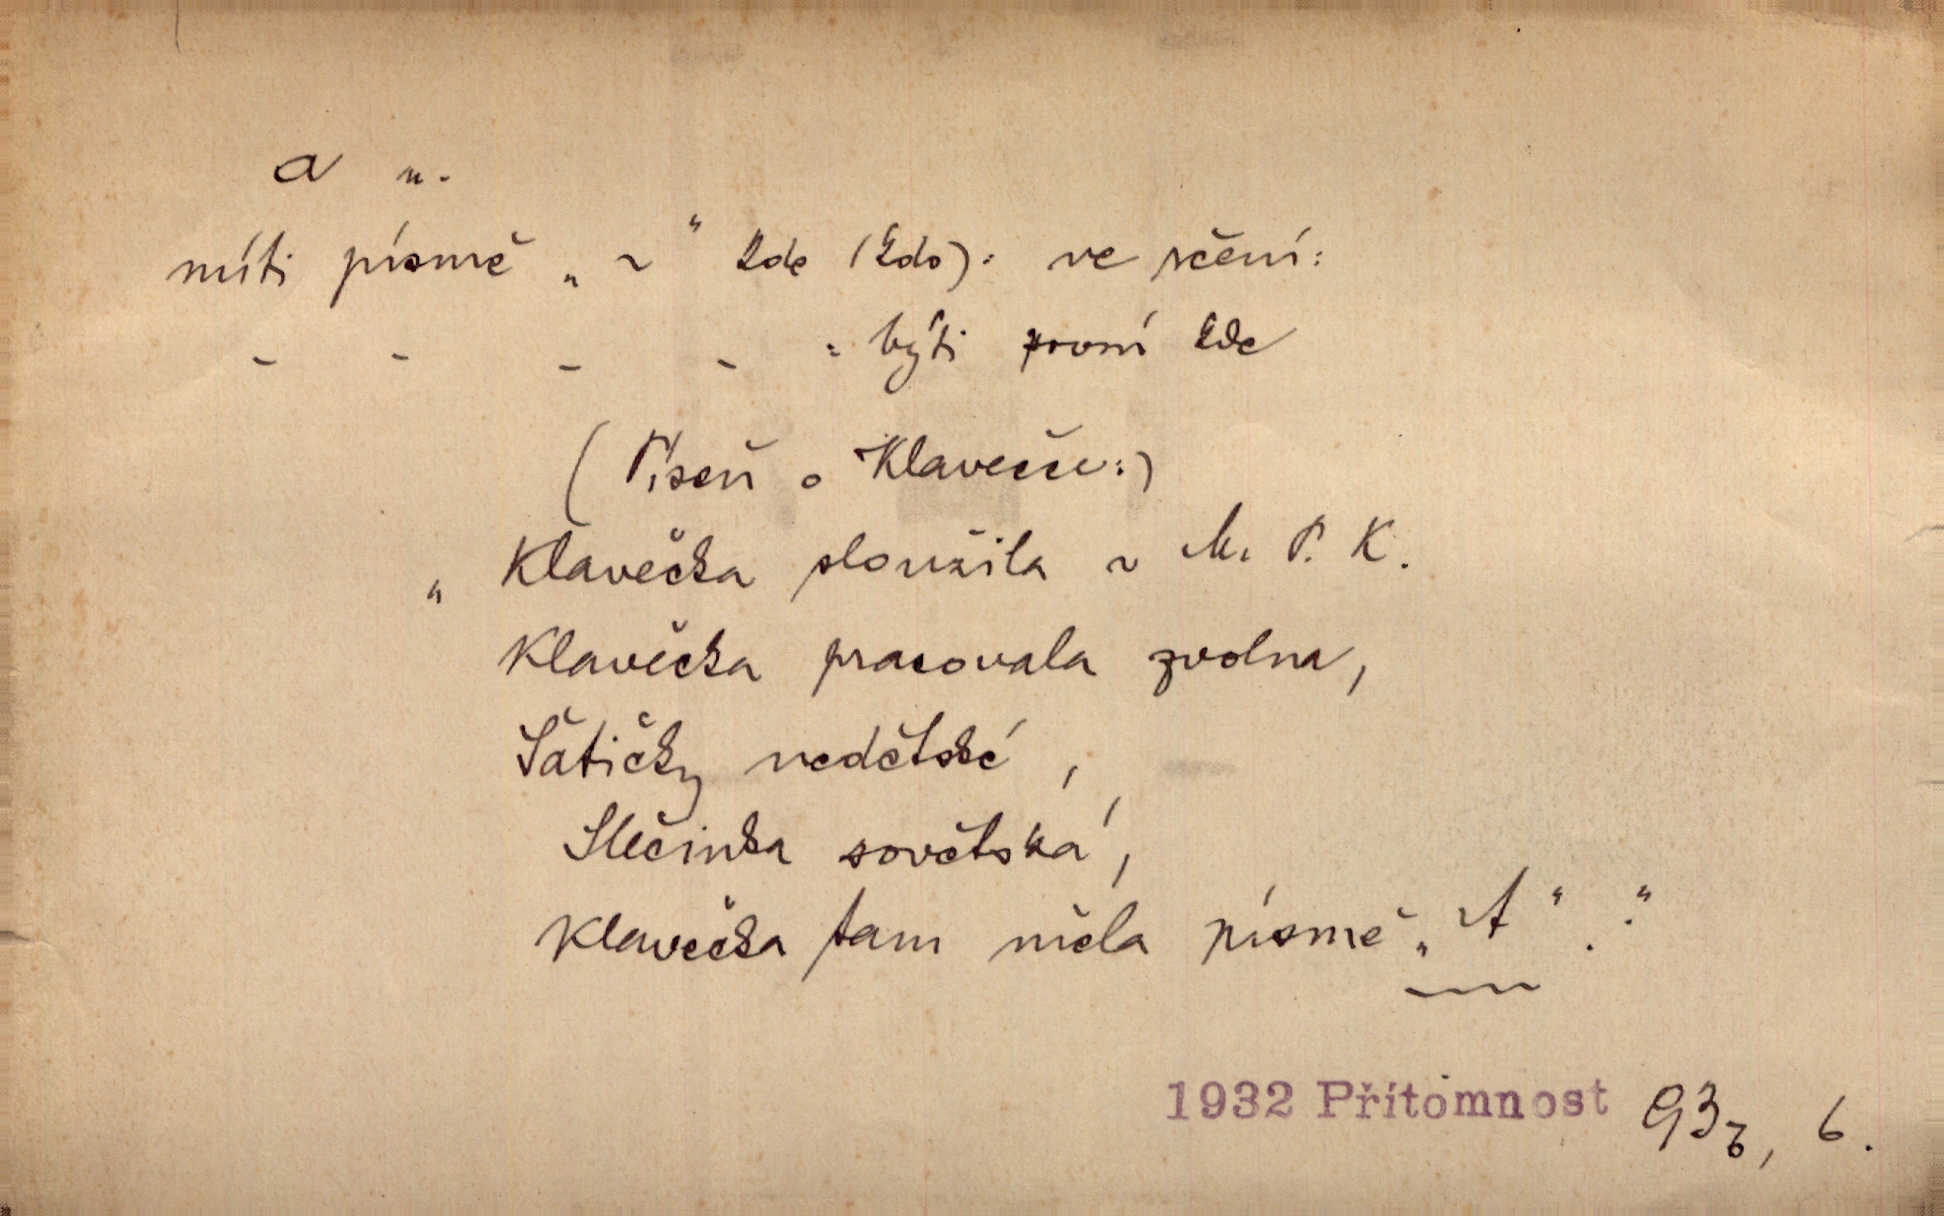 a n.
míti písmě „~“ kde (kdo): ve rčení:
- - - - : býti první kde
(Píseň o Klavečce:)
„Klavečka sloužila v M. P. K.
Klavečka pracovala zvolna,
Šatičky nedětské,
Slečinka sovětská,
Klavečka tam měla písmě „A“.“
1932 Přítomnost 93b, 6.